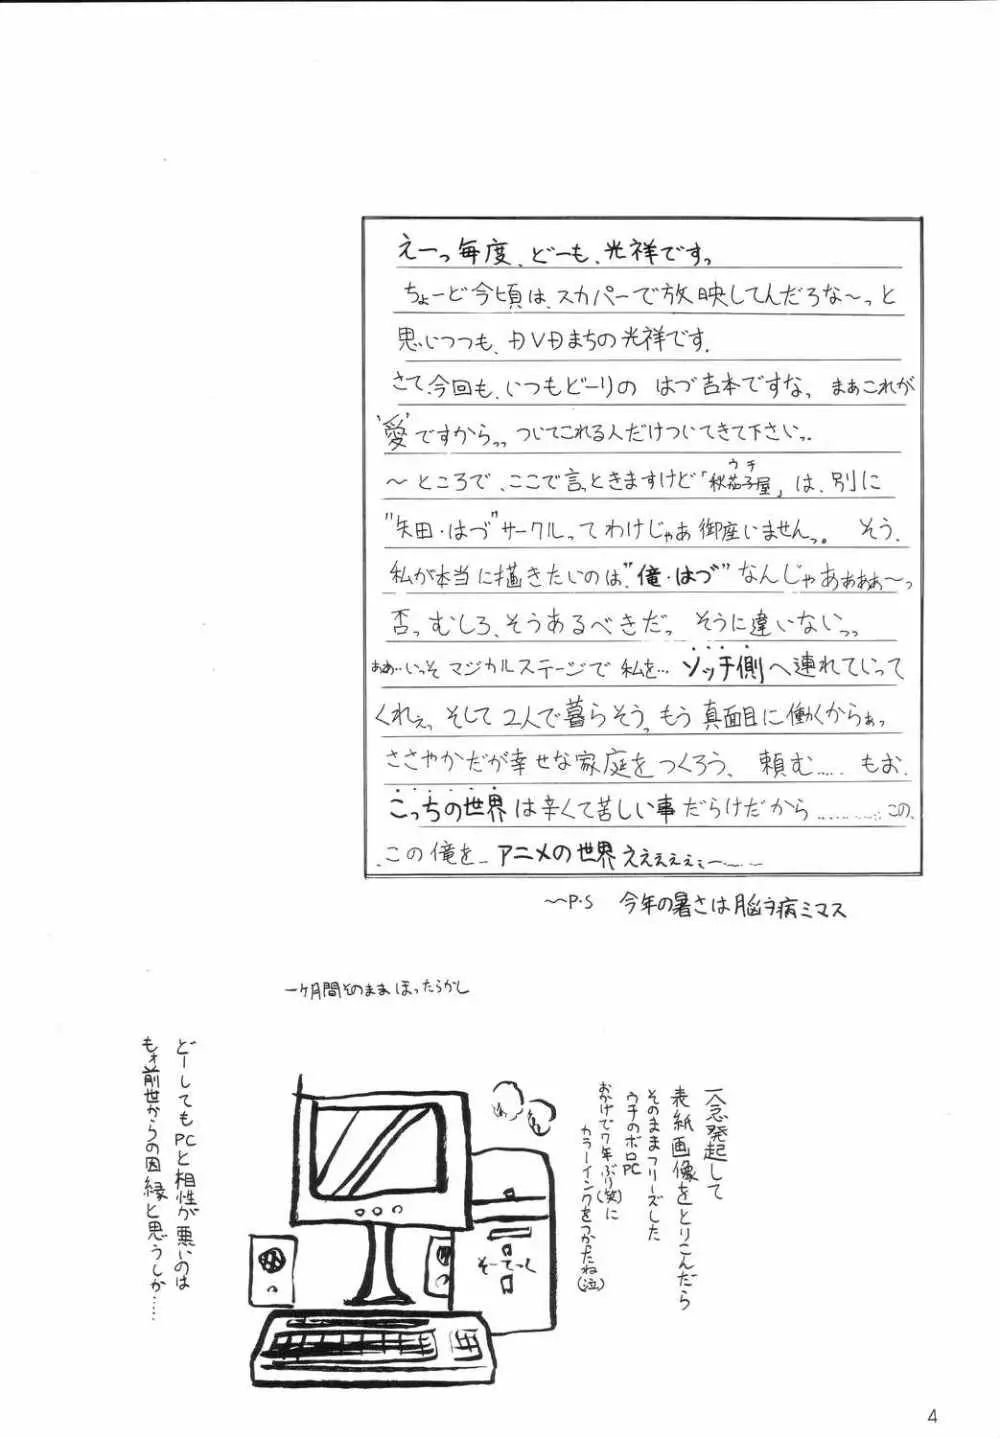 えーっ毎度、どーも、光祥ですっ
ちょーど今頃は、スカパーで放映してんだろな〜っと
思いつつも、DVDまちの光祥です.
さて、今回も、いつもどーりの はづ吉本ですなっ まあこれが
"愛"ですからっっ ついてこれる人だけついてきて下さいっ.
〜ところで、ここで言っときますけど「秋茄子屋」は、別に
ウチ
"矢田・はづ"サークルってわけじゃあ御座いませんっ。 そう.
私が本当に描きたいのは"俺・はづ"なんじゃあぁぁぁ〜っ
否っむしろ、そうあるべきだっ そうに違いないっっ
ああ…いっそ マジカルステージで 私を… ソッチ側へ連れていって
くれぇ、そして2人で暮らそうっもう真面目に働くからぁっ
ささやかだが幸せな家庭をつくろう、頼む…… もお.
こっちの世界は辛くて苦しい事だらけだから………… この、
この俺を… アニメの世界えええええぇー……
〜〜P.S 今年の暑さは脳ヲ病ミマス
一ヶ月間そのまま ほったらかし
一念発起して
表紙画像をとりこんだら
そのままフリーズした
ウチのボロPC
おかげで7年ぶり(笑)に
カラーインクをつかったね(泣)
そーてっく
どーしてもPCと相性が悪いのは
もォ前世からの因縁と思うしか……
4